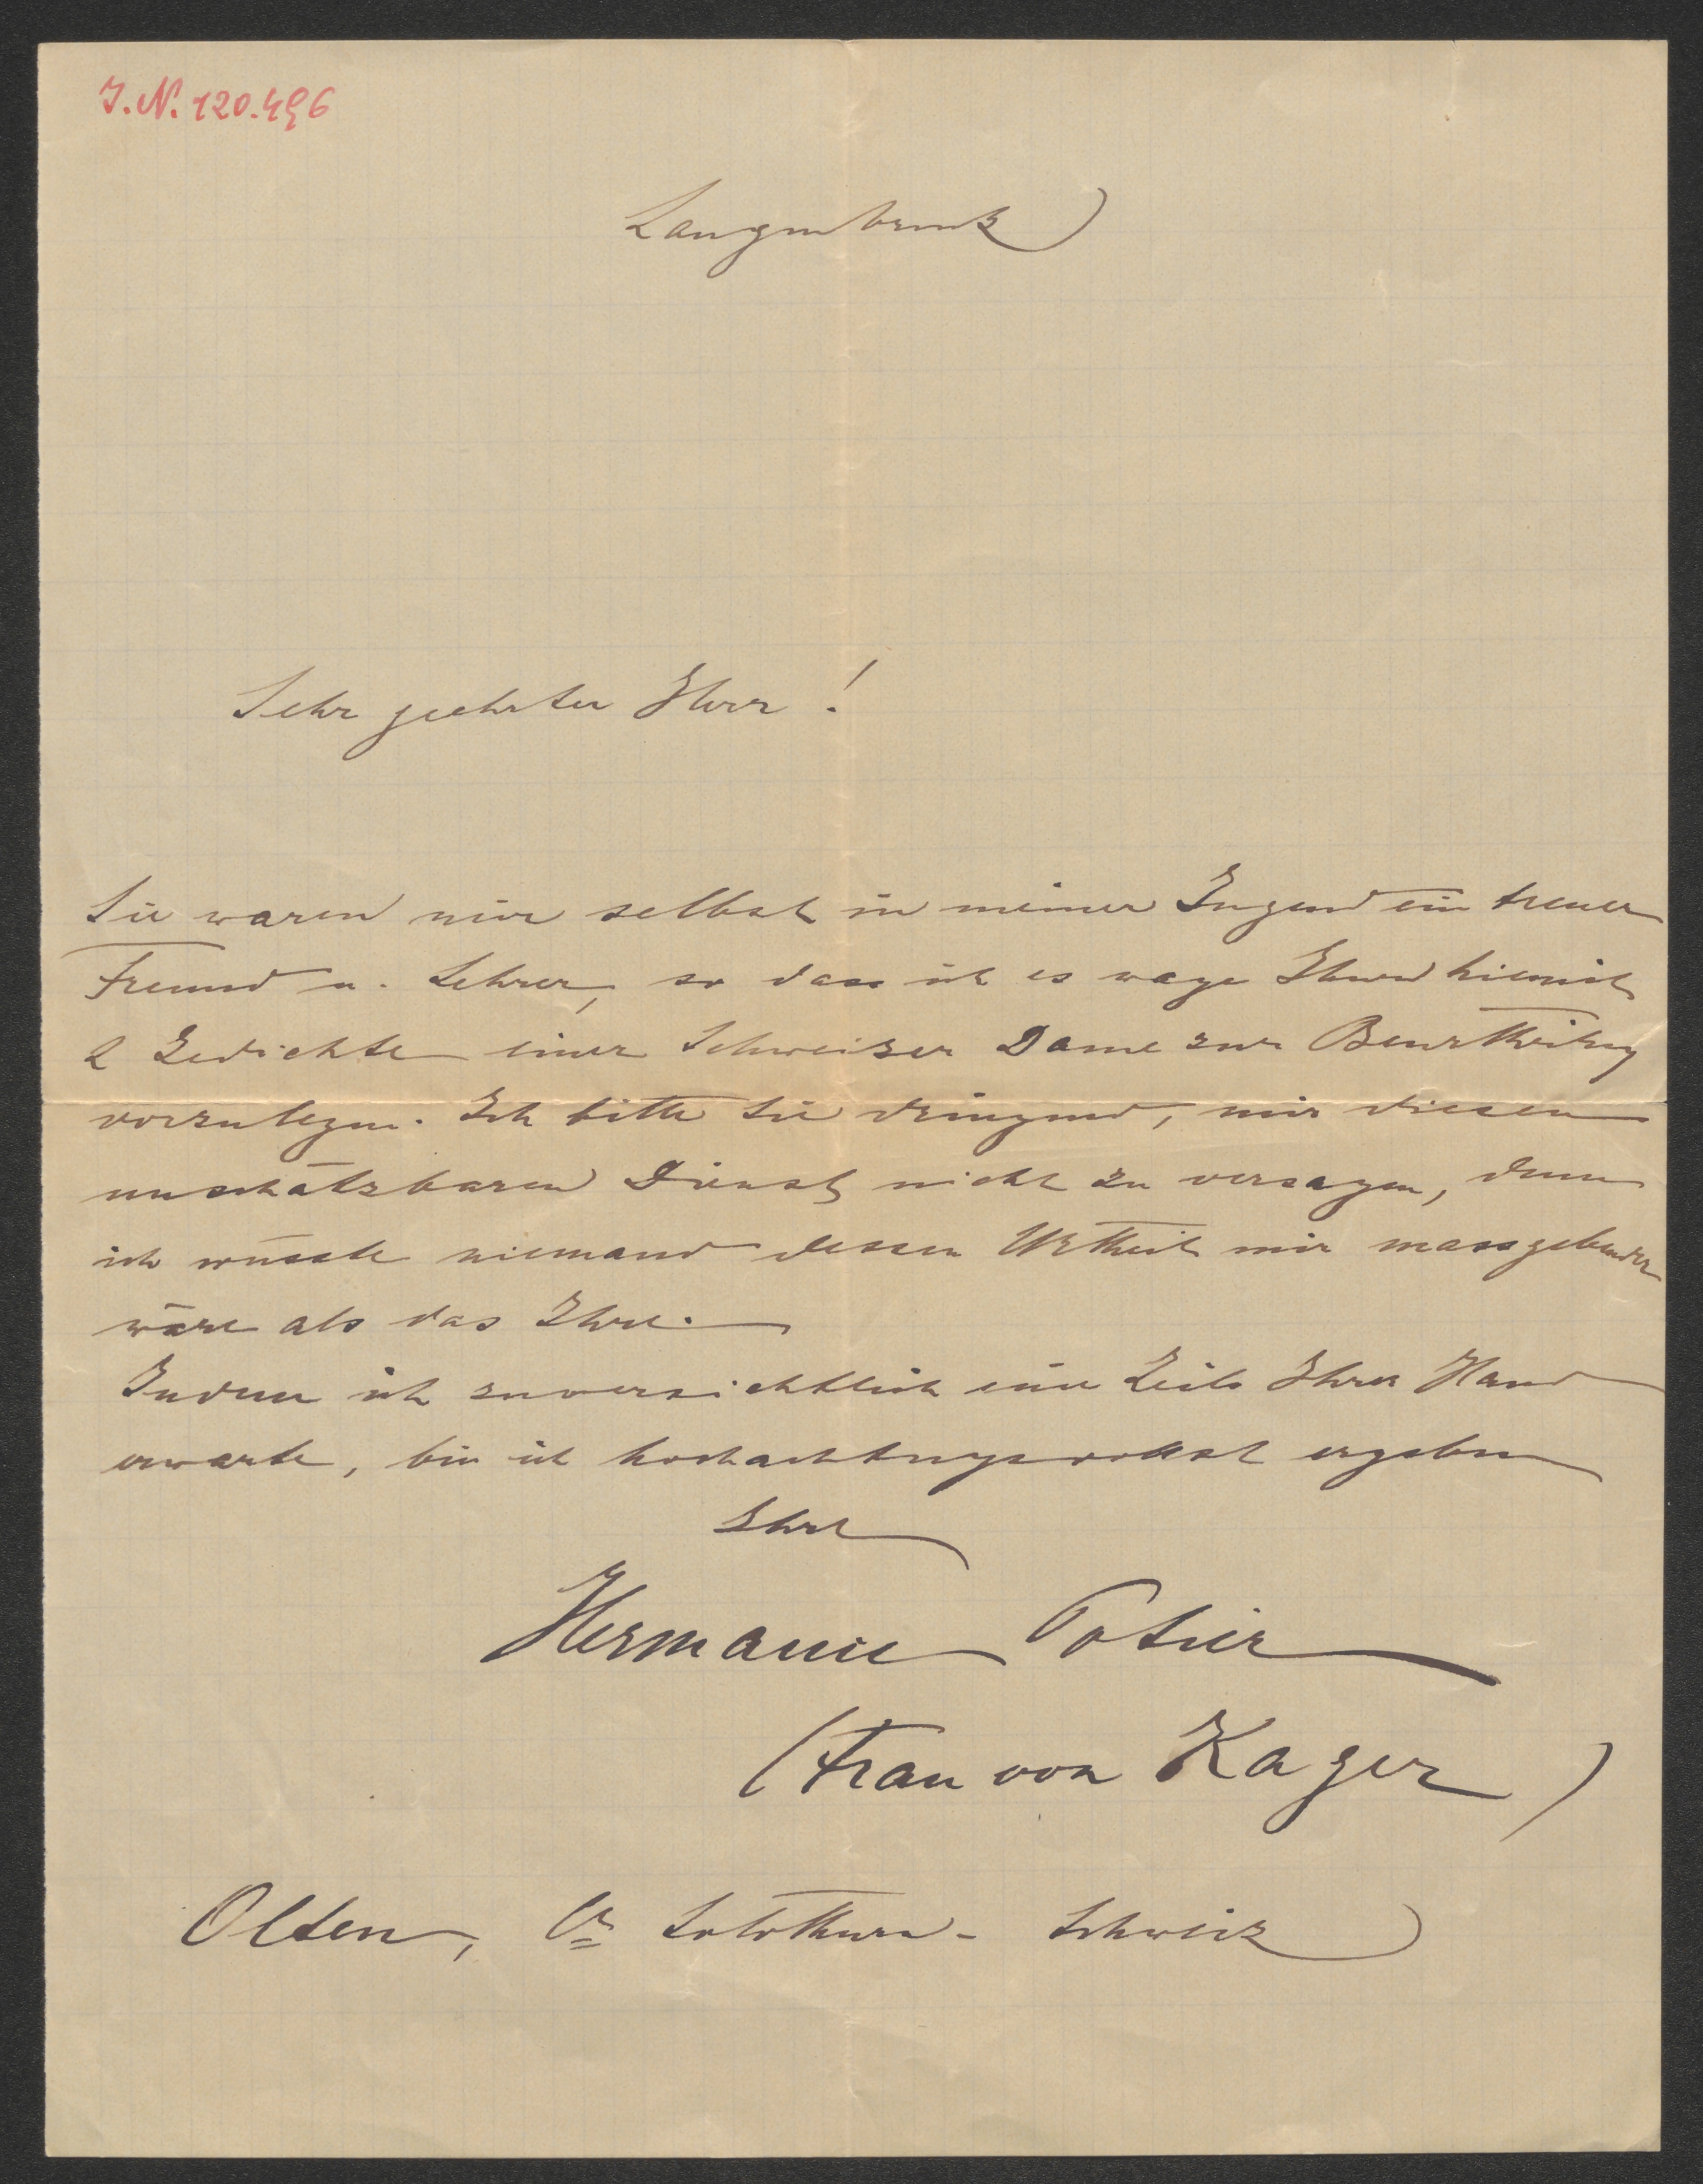 J.N. 120.496
Langenbruck
Sehr geehrter Herr!
Sie waren mir selbst in meiner Jugend ein treuer
Freund u. Lehrer, so dass ich es wage Ihnen hiemit
2 Gedichte einer Schweizer Dame zur Beurtheilung
vorzulegen. Ich bitte Sie dringend, mir diesen
unschätzbaren Dienst nicht zu versagen, denn
ich wüsste niemand dessen Urtheil mir massgebender
wäre als das Ihre.
Indem ich zuversichtlich eine Zeile Ihrer Hand
erwarte, bin ich hochachtungsvollst ergeben
Ihre
Hermanie Potier
(Frau von Kager)
Olten, Ct Solothurn - Schweiz